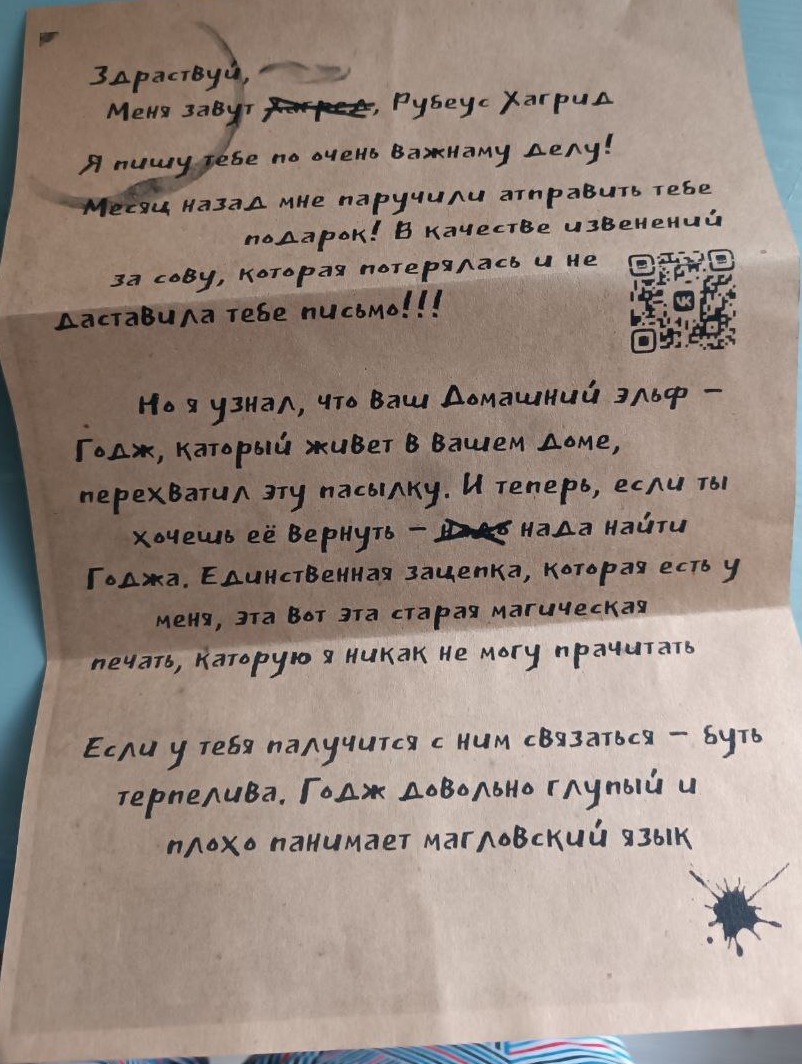 Здраствуй,
Меня завут Хагред, Рубеус Хагрид
Я пишу тебе по очень важнаму делу!
Месяц назад мне паручили атправить тебе
подарок! В качестве извенений
за сову, которая потерялась и не
даставила тебе письмо!!!
Но я узнал, что ваш Домашний эльф –
Годж, каторый живет в вашем доме,
перехватил эту пасылку. И теперь, если ты
хочешь её вернуть – нада найти
Годжа. Единственная зацепка, которая есть у
меня, эта вот эта старая магическая
печать, каторую я никак не могу прачитать
Если у тебя палучится с ним связаться – буть
терпелива. Годж довольно глупый и
плохо панимает магловский язык